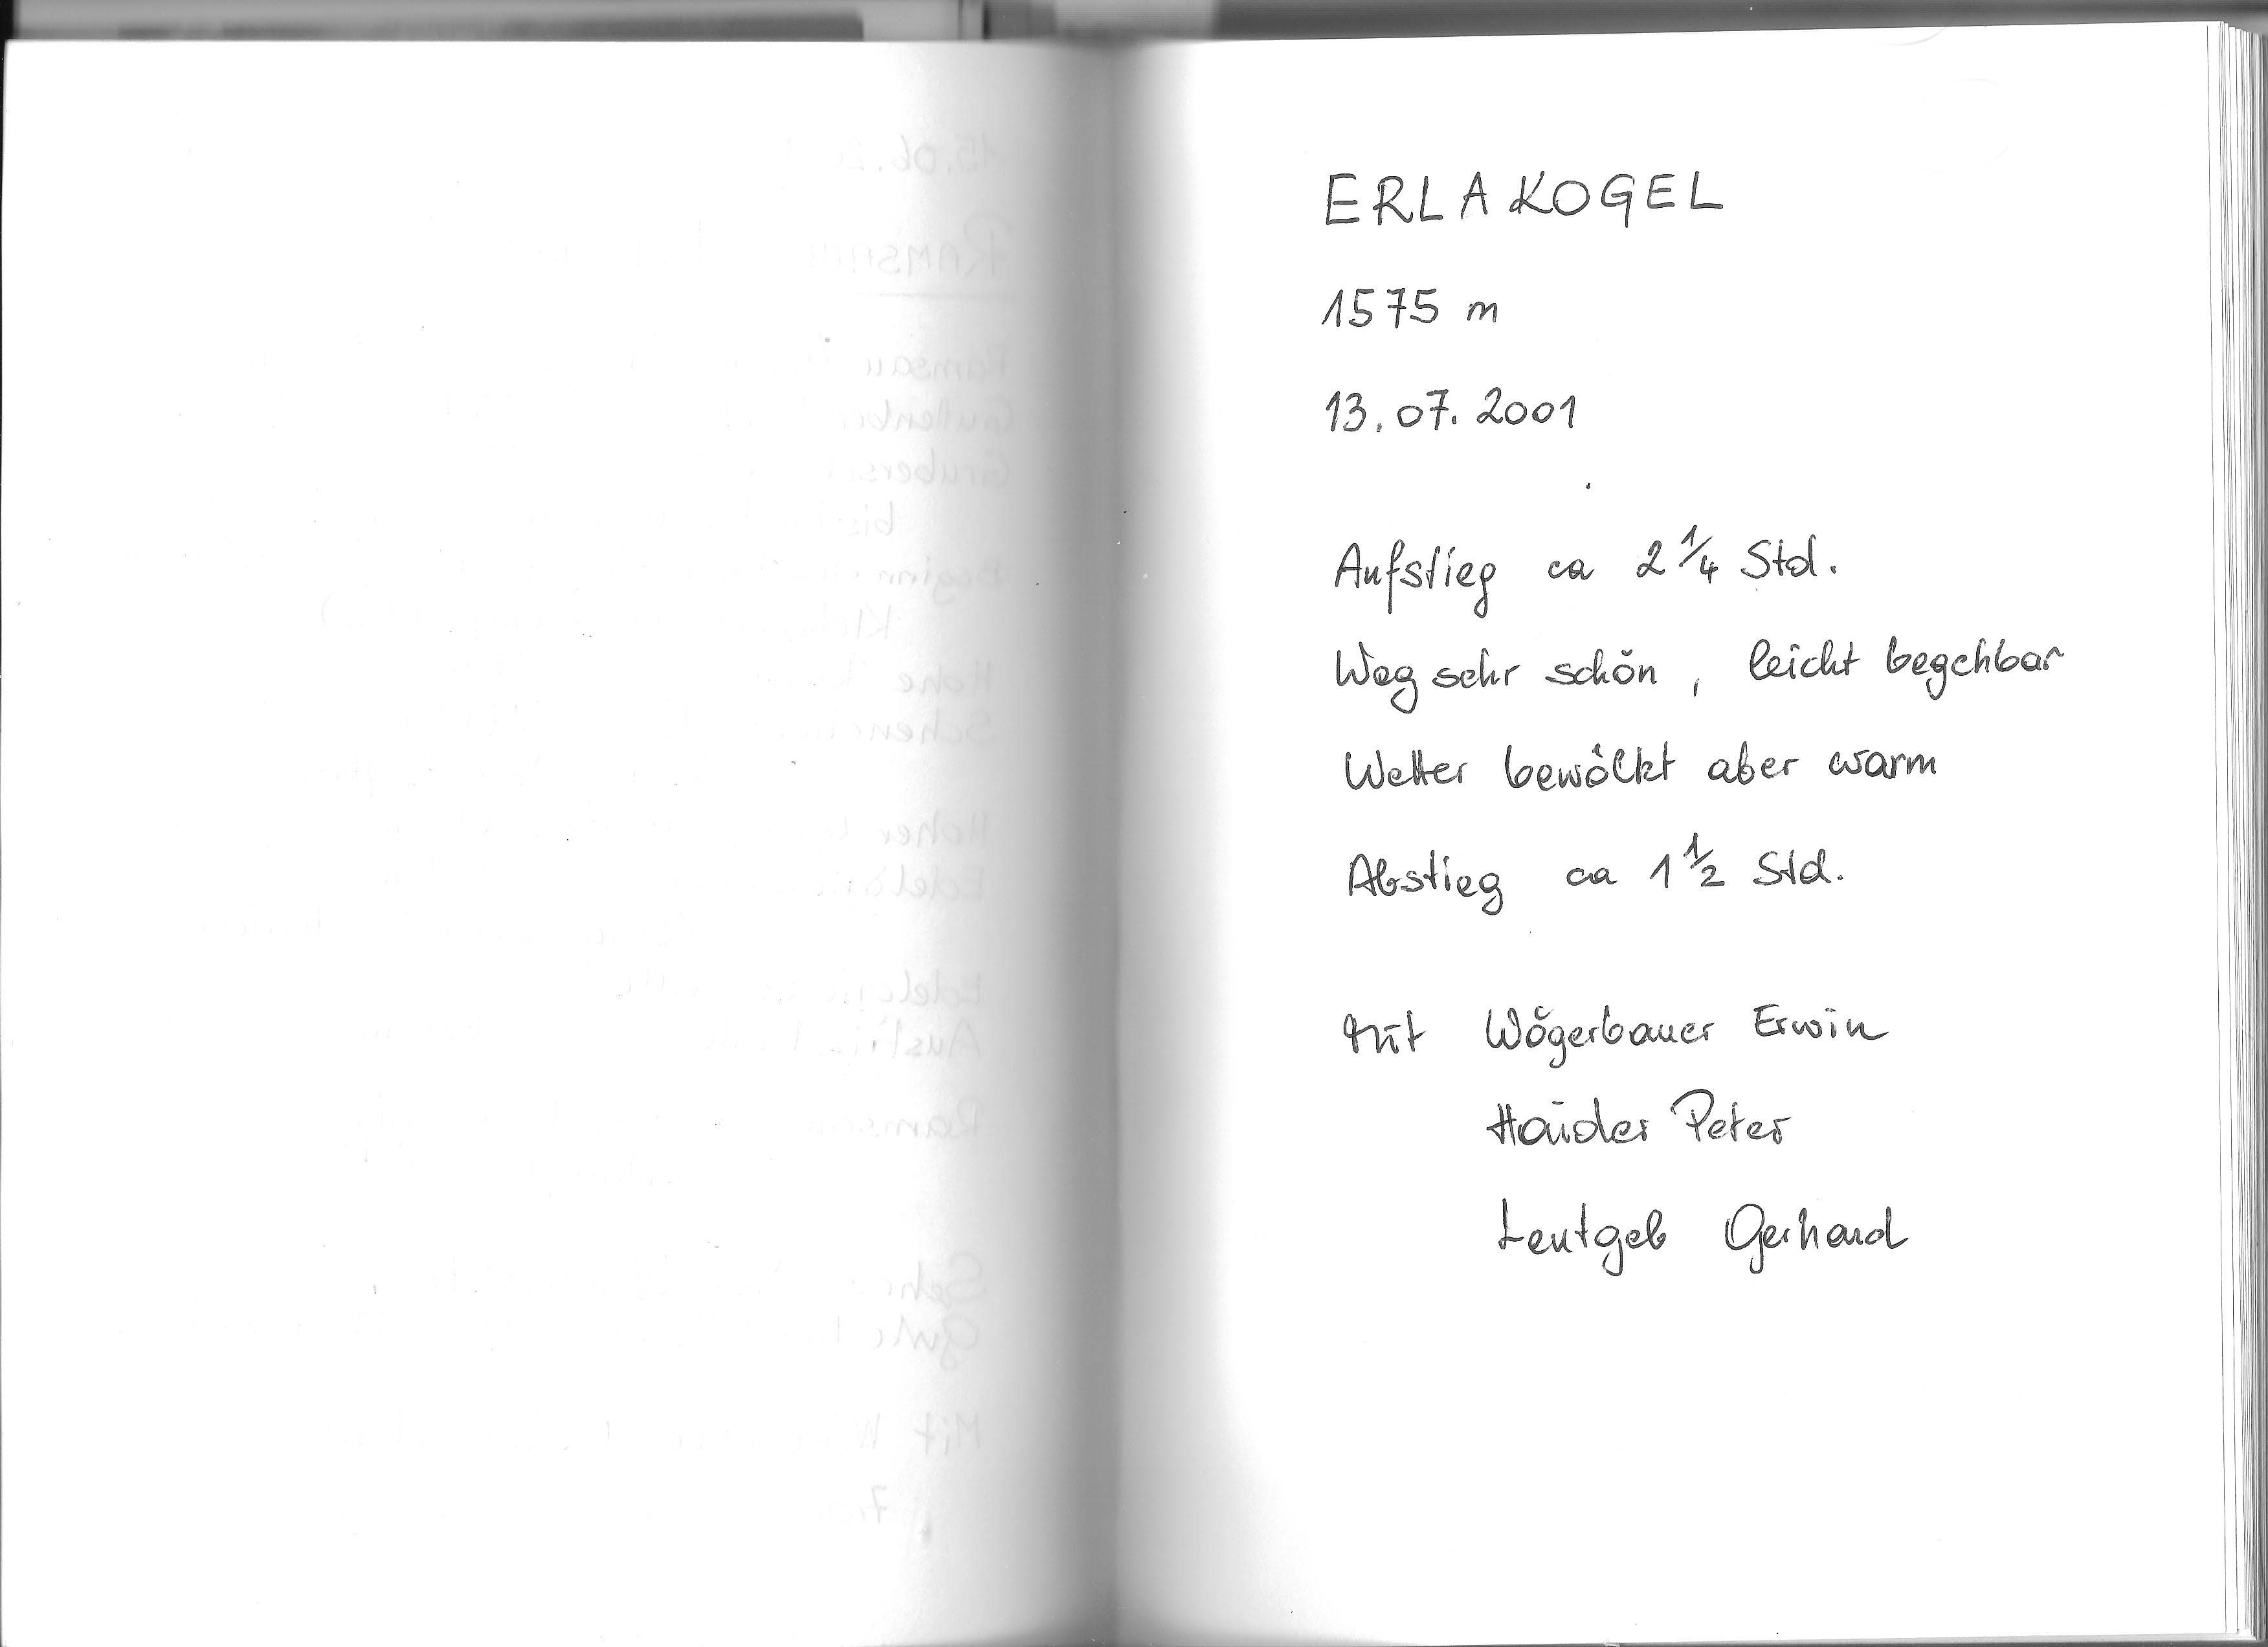 ERLAKOGEL
1575 m
13.07.2001
Aufstieg ca 2 1/4 Std.
Weg sehr schön, leicht begehbar
Wetter bewölkt aber warm
Abstieg ca 1 1/2 Std.
mit Wögerbauer Erwin
Haider Peter
Leutgeb Gerhard